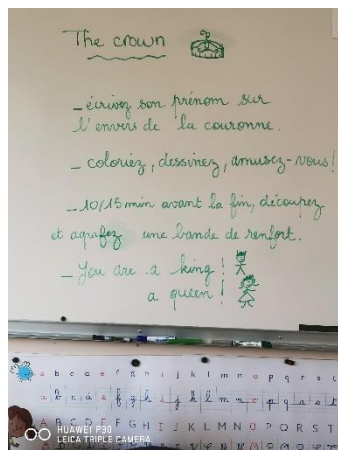 The crown
_ écrivez son prénom sur
l'envers de la couronne.
_ coloriez, dessinez, amusez-vous!
_ 10/15 min avant la fin, découpez
et agrafez une bande de renfort.
_ You are a king!
a queen!
a b c d e f g h i j k l m n o p q r s t
A B C D E F G H I J K L M N O P Q R S T
HUAWEI P30
LEICA TRIPLE CAMERA